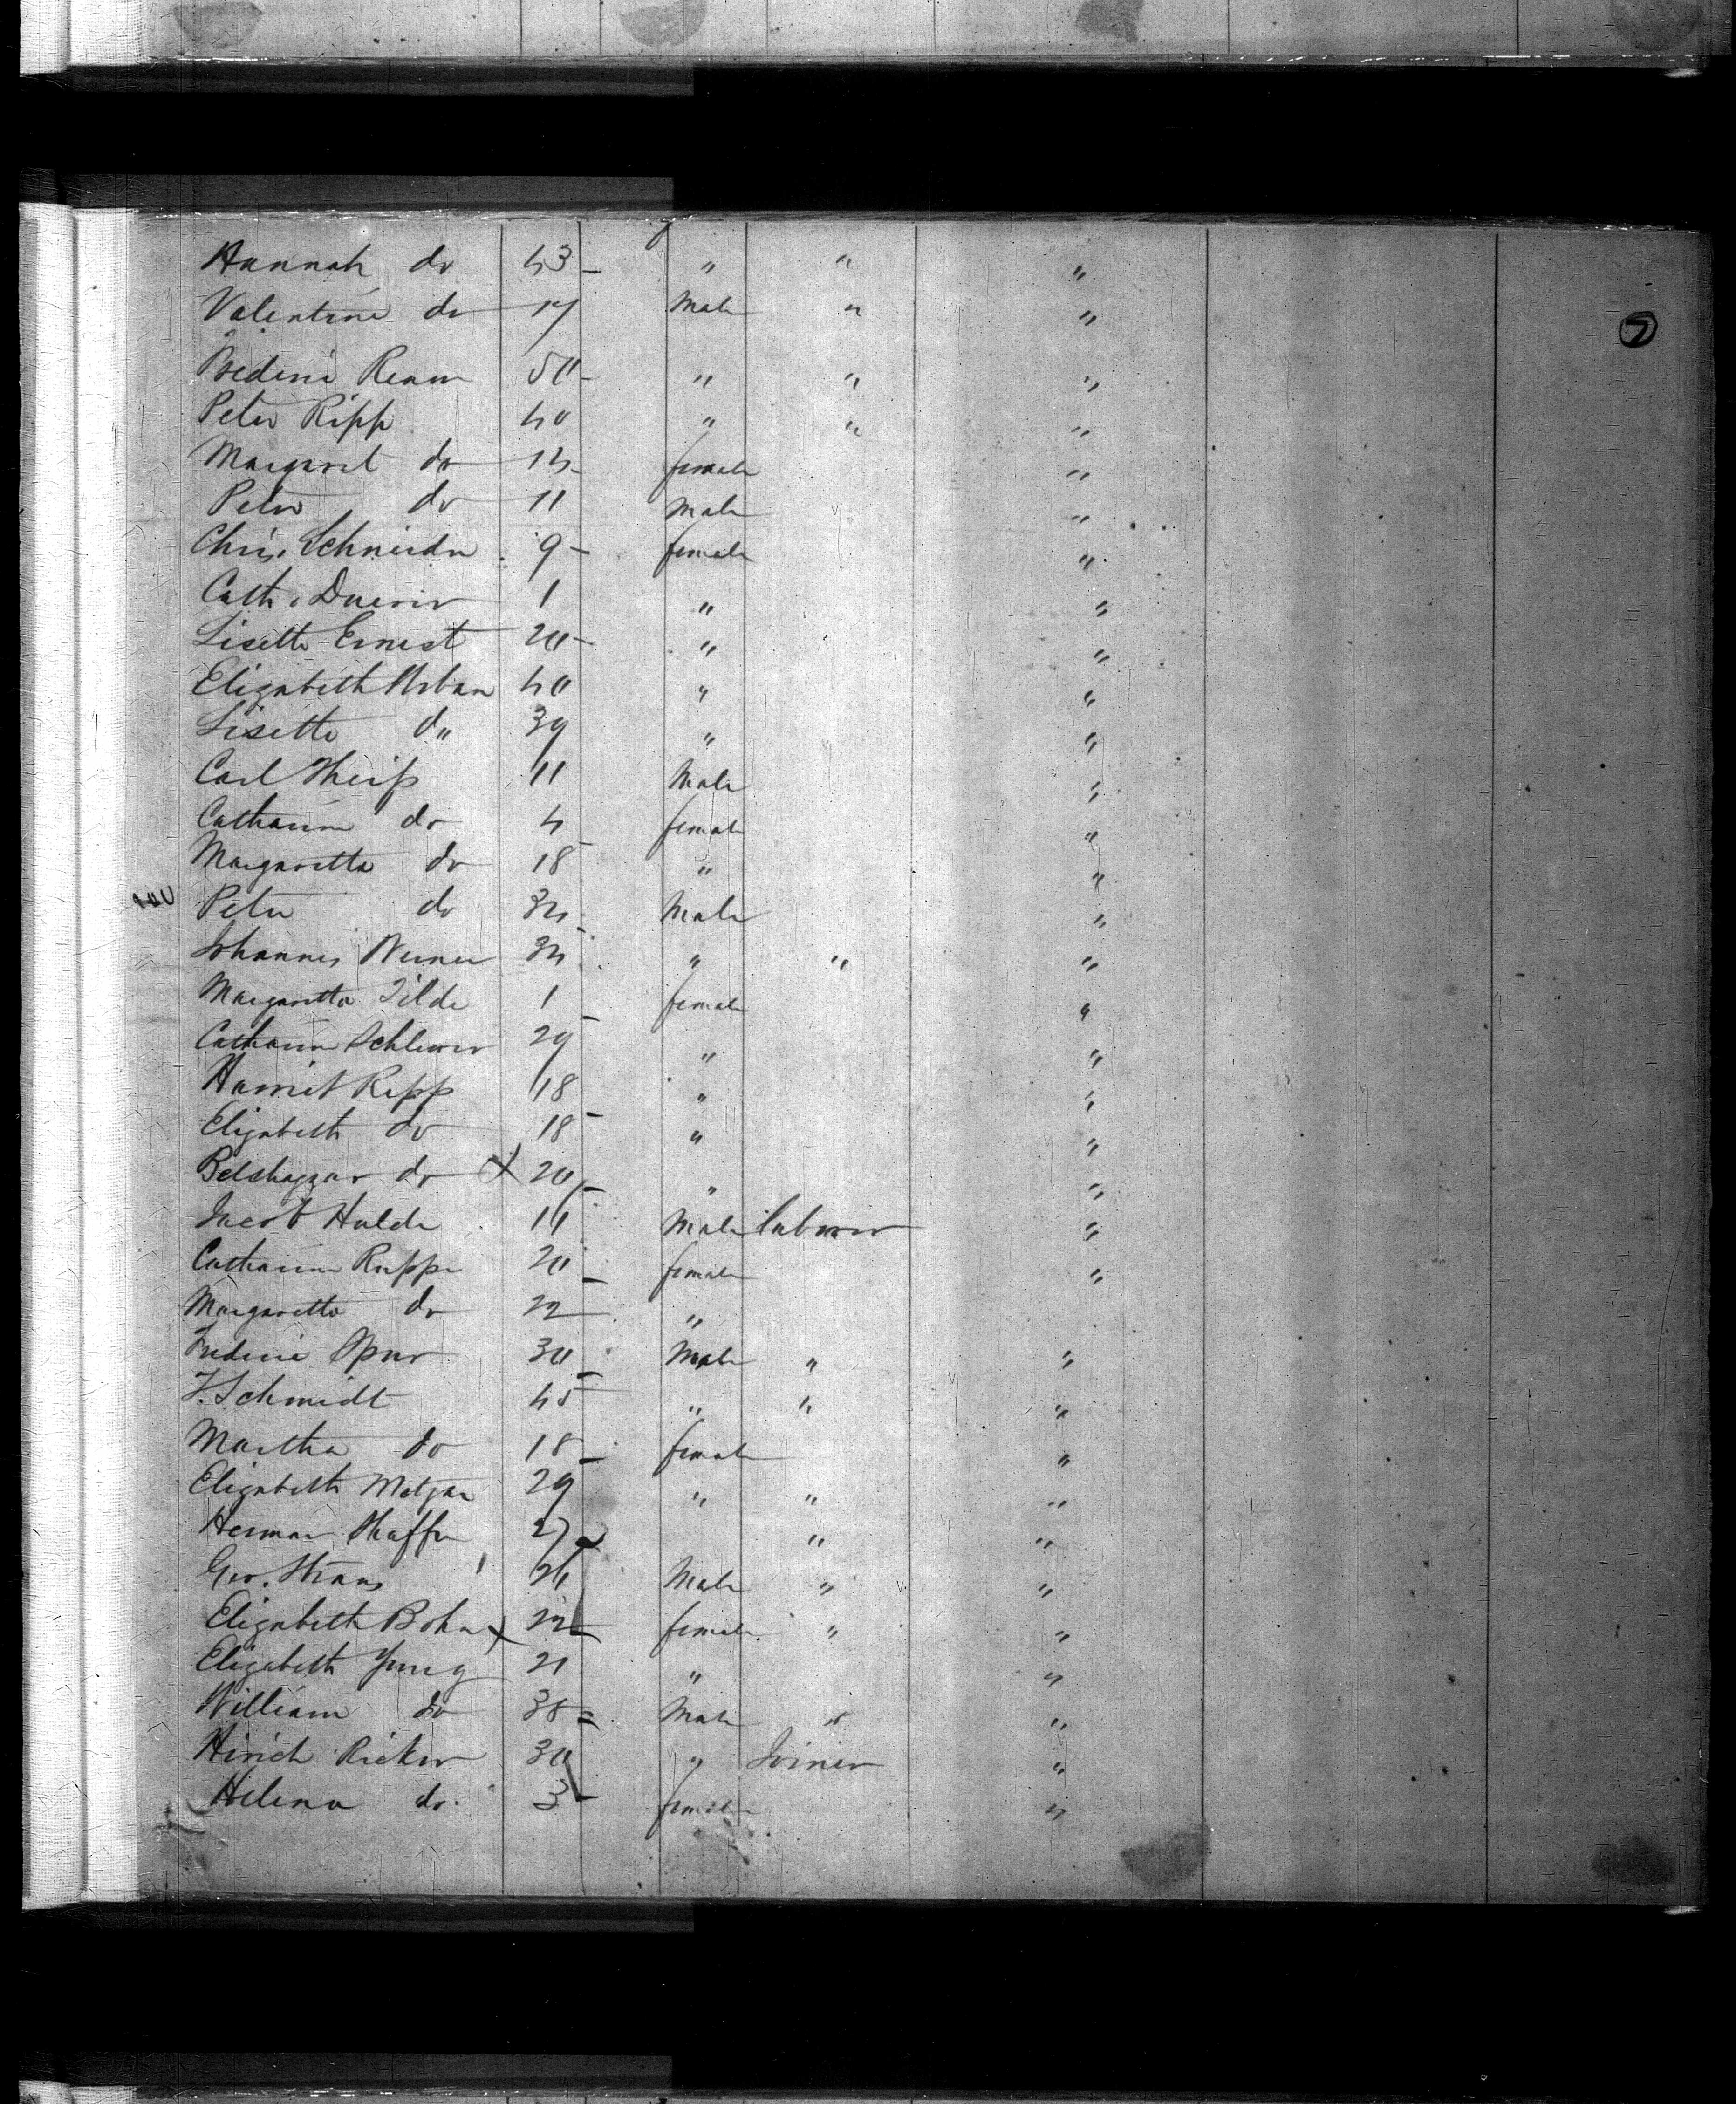 Hannah do 43 " " "
Valentine do 17 Male " "
Frederic Ream 50 " " "
Peter Ripp 40 " " "
Margaret do 14 female "
Peter do 11 Male "
Chris. Schneider 9 female "
Cath. 1 " "
Lisette Ernest 20 " "
Elizabeth Urban 40 " "
Lisette do 39 " "
Carl Theiss 11 Male "
Catharine do 4 female "
Margaretta do 18 " "
Peter do 34 Male "
Johannes Werner 34 " " "
Margaretta Tilde 1 female "
Catharine 29 " "
Harriet Ripp 18 " "
Elizabeth do 18 " "
Belshazzar do X 20 " "
Jacob Halde Male laborer "
Catharine Ruppe 20 female "
Margaretta do 22 "
Frederic Spur 30 Male " "
F. Schmidt 45 " " "
Martha do 18 female "
Elizabeth Metzgar 29 " " "
Herman Shaffer 27 " "
Geo. Straus Male " "
Elizabeth Bohn X 22 female " "
Elizabeth Yung 21 " "
William do 38 Male " "
Hinrich Ricker 30 " Joiner "
Helena do. 3 female "